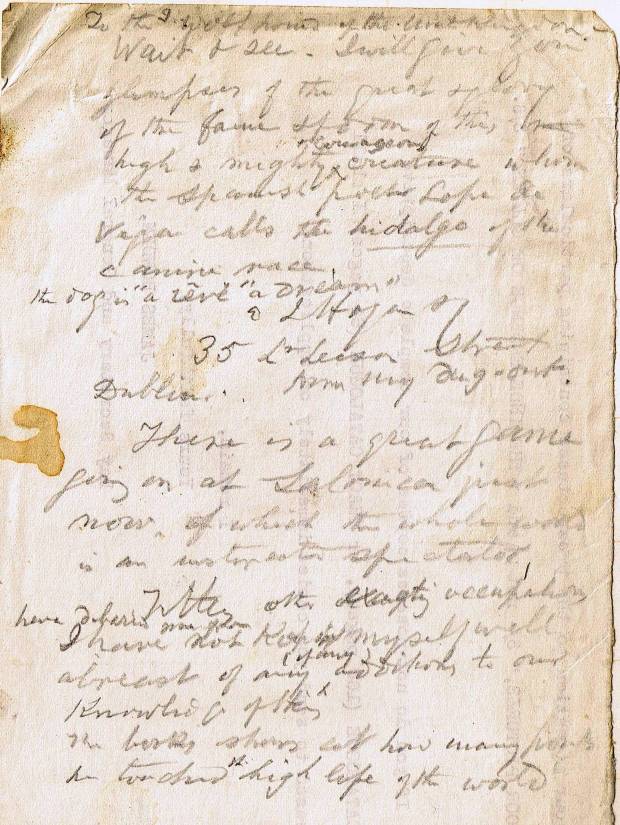 To the
Wait & see. I will give you
glimpses of the great glory
of the fame of this
& courageous
high & mighty creature whom
the Spanish poet Lope de
Vega calls the hidalgo of the
canine race,
the dog is "a rêve" "a dream"
Hogan SJ
35 Lr Leeson Street
Dublin. from my Dug-out.
There is a great game
going on at Salonica just
now, of which the whole world
is an spectator,
other exacting occupations
have debarred me from
I have not kept myself well
(if any)
abreast of any additions to our
Knowledge of this
The books shows at how many points
he touched the high life of the world